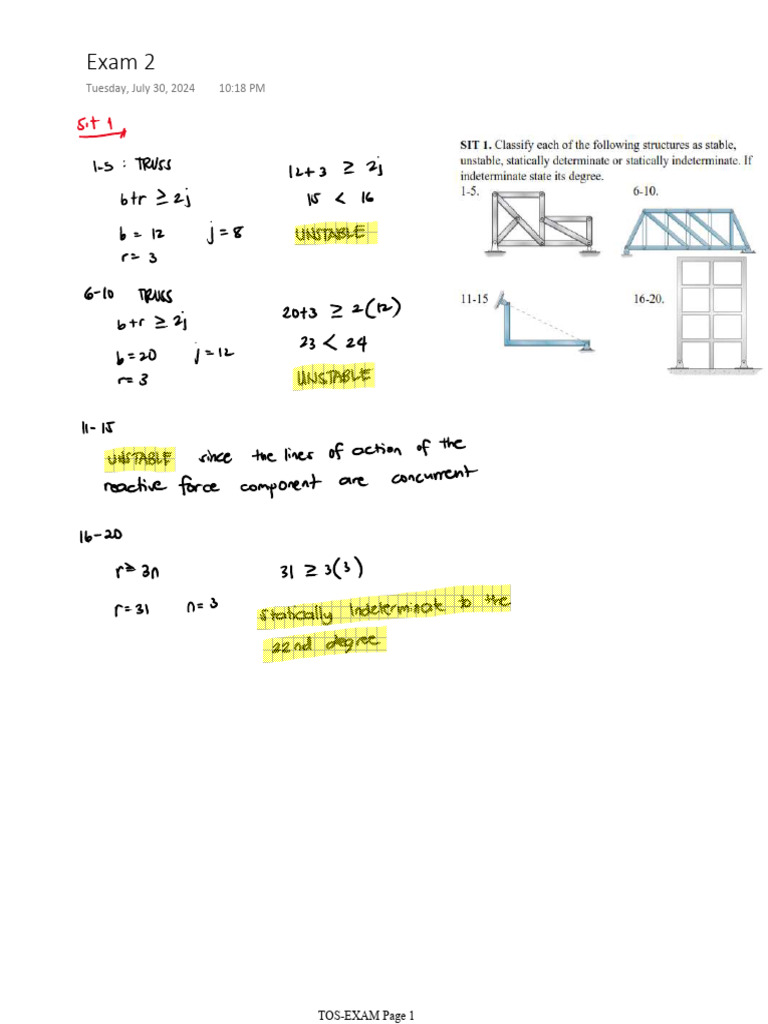 Exam 2
Tuesday, July 30, 2024 10:18 PM
Sit 1
1-5 : TRUSS
b+r ≥ 2j
b = 12 j = 8
r = 3
12+3 ≥ 2j
15 < 16
UNSTABLE
SIT 1. Classify each of the following structures as stable,
unstable, statically determinate or statically indeterminate. If
indeterminate state its degree.
1-5. 6-10.
11-15 16-20.
6-10 TRUSS
b+r ≥ 2j
b=20 j=12
r=3
20+3 ≥ 2(12)
23 < 24
UNSTABLE
11-15
UNSTABLE since the lines of action of the
reactive force component are concurrent
16-20
r≥3n 31 ≥ 3(3)
r=31 n=3 Statically Indeterminate to the
22nd degree
TOS-EXAM Page 1